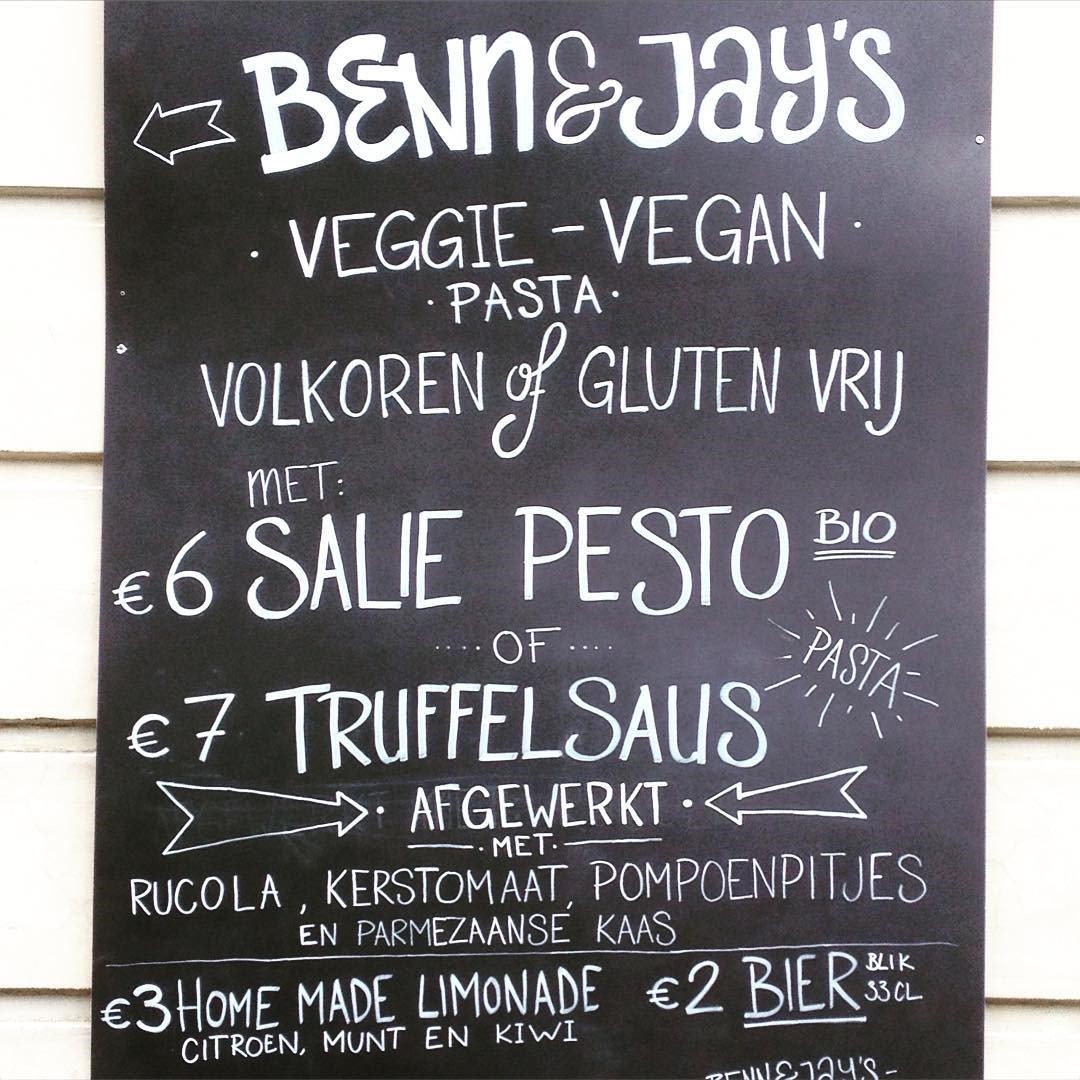 BENN & JAY'S
· VEGGIE - VEGAN ·
· PASTA ·
VOLKOREN of GLUTEN VRIJ
MET:
€6 SALIE PESTO BIO
.... OF ....
PASTA
€7 TRUFFELSAUS
· AFGEWERKT ·
· MET ·
RUCOLA, KERSTOMAAT, POMPOENPITJES
EN PARMEZAANSE KAAS
€3 HOME MADE LIMONADE
CITROEN, MUNT EN KIWI
€2 BIER BLIK
33CL
BENN & JAY'S -